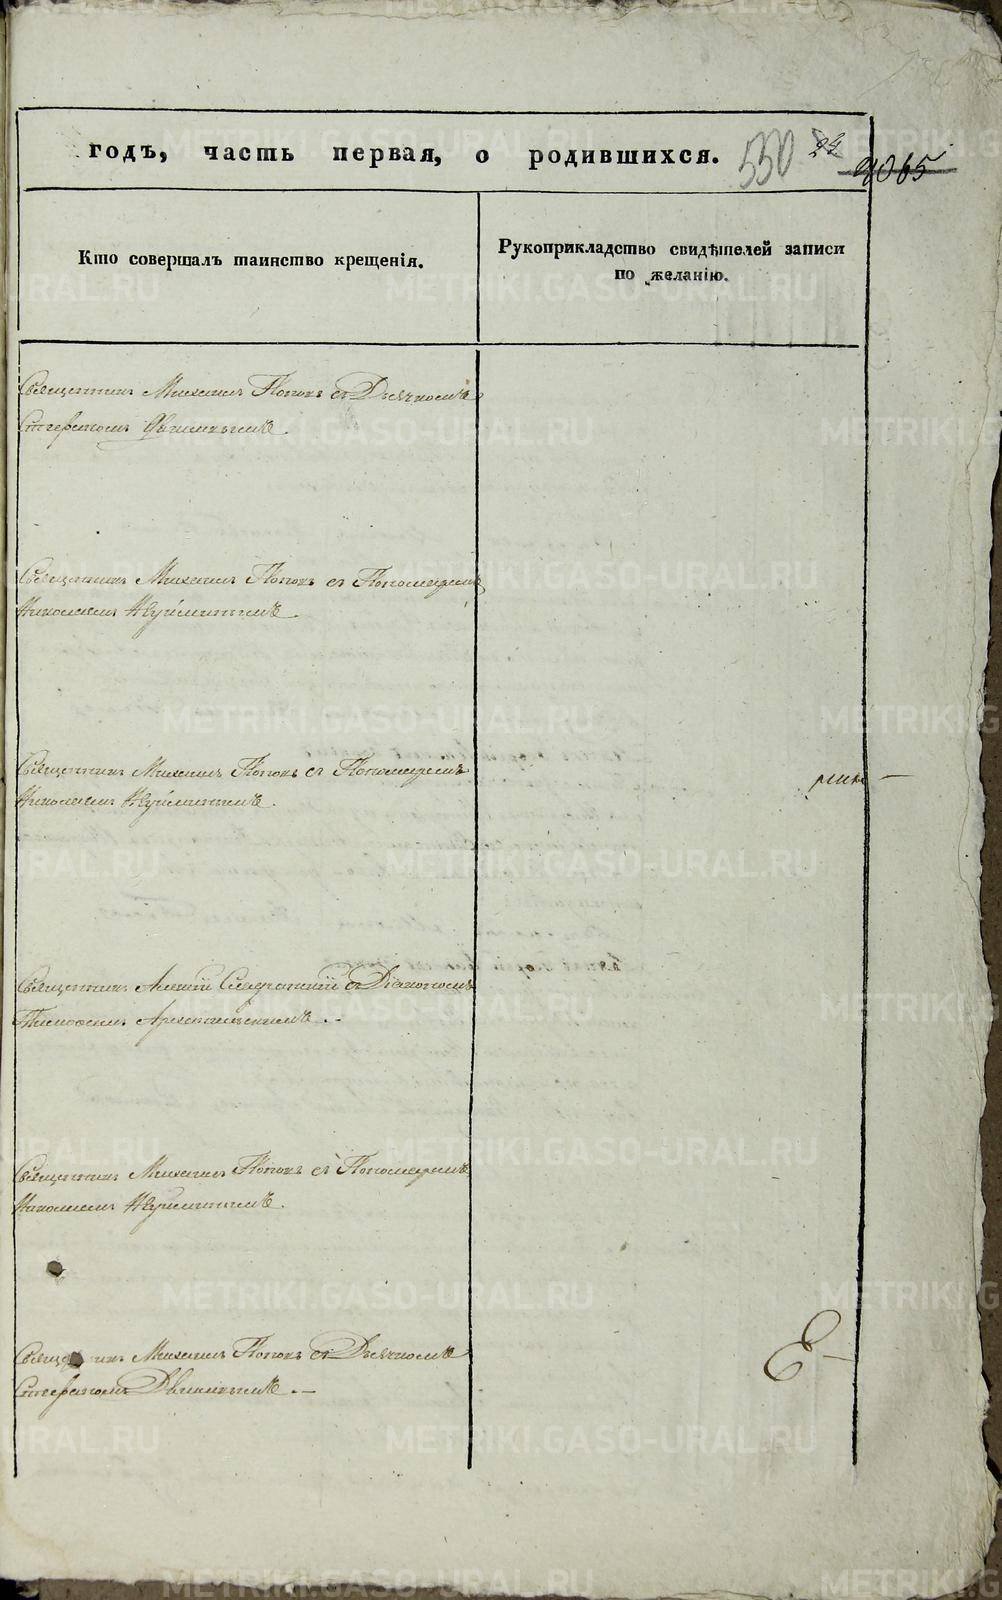 годъ, часть первая, о родившихся.
550
4065
Кто совершалъ таинство крещенія.
Рукоприкладство свидѣтелей записи
по желанію.
Священникъ Михаилъ Поповъ съ Дьячкомъ
Стефаномъ
Священникъ Михаилъ Поповъ съ Пономаремъ
Николаемъ
Священникъ Михаилъ Поповъ съ Пономаремъ
Николаемъ
Священникъ Алексій съ Діакономъ
Тимофеемъ
Священникъ Михаилъ Поповъ съ Пономаремъ
Николаемъ
Е
Священникъ Михаилъ Поповъ съ Дьячкомъ
Стефаномъ
METRIKI.GASO-URAL.RU